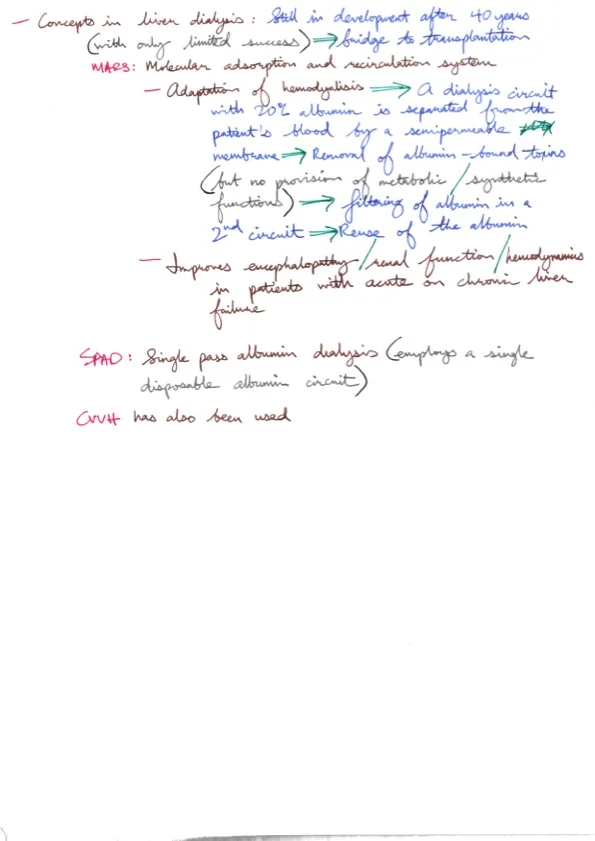 — Concepts in liver dialysis : Still in development after 40 years
(with only limited success) ⇒ bridge to transplantation
MARS: Molecular adsorption and recirculation system
— Adaptation of hemodyalisis ⇒ A dialysis circuit
with 20% albumin is separated from the
patient's blood by a semipermeable
membrane ⇒ Removal of albumin-bound toxins
(but no provision of metabolic / synthetic
functions) ⇒ filtering of albumin in a
2nd circuit ⇒ Reuse of the albumin
— Improves encephalopathy / renal function / hemodynamics
in patients with acute on chronic liver
failure
SPAD: Single pass albumin dialysis (employs a single
disposable albumin circuit)
CVVH has also been used